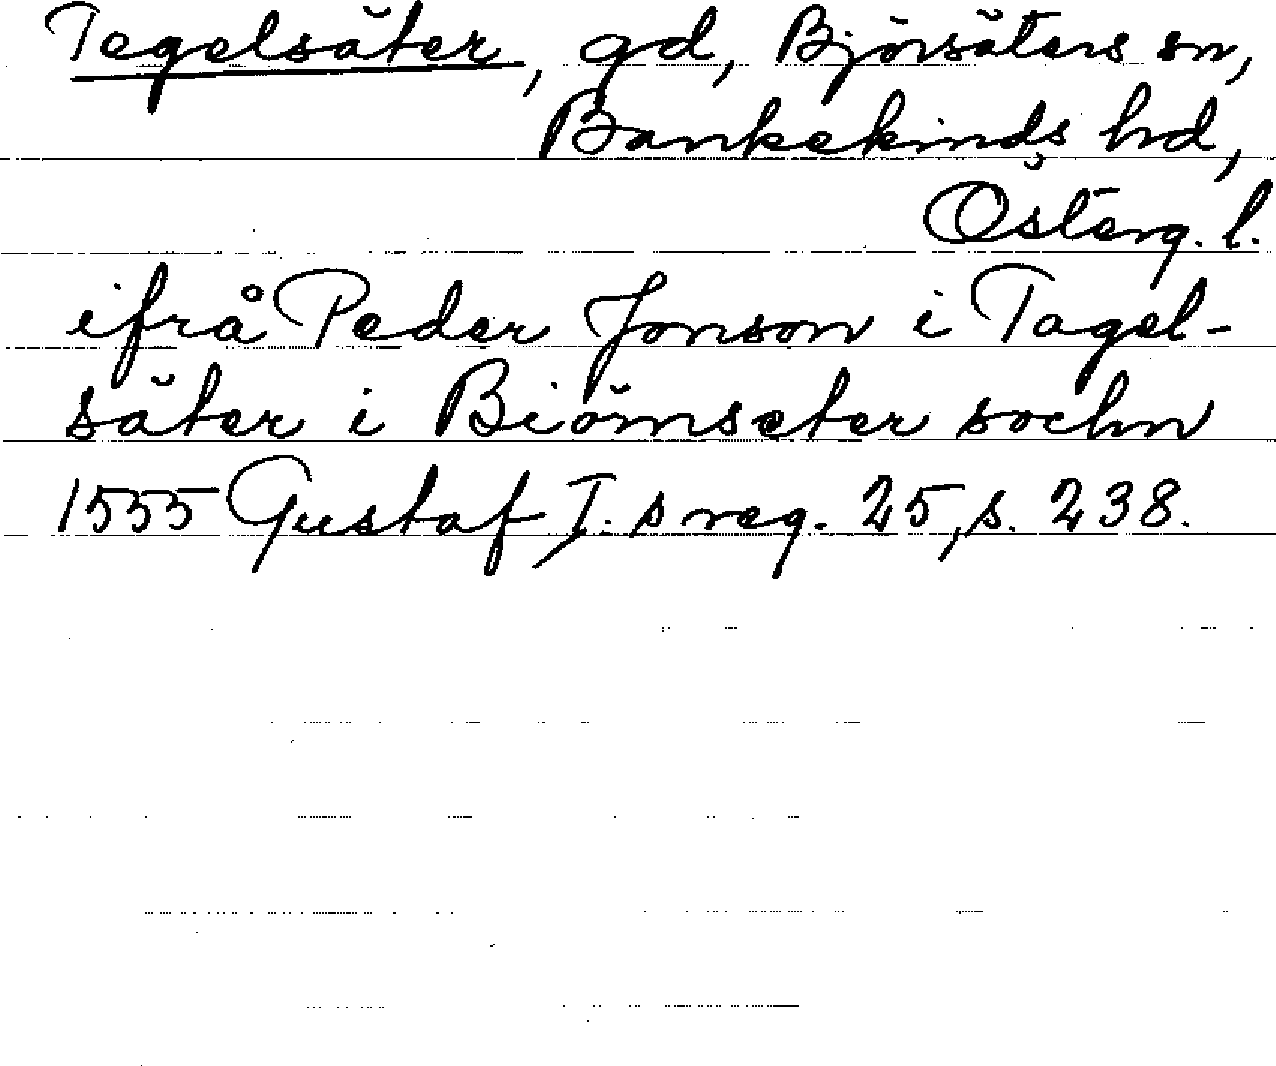 Tegelsäter, gd, Björsäters sn,
Bankekinds hd,
Österg. l.
ifrå Peder Jonson i Tagel-
säter i Biömseter sochn
1555 Gustaf I. s reg. 25, s. 238.